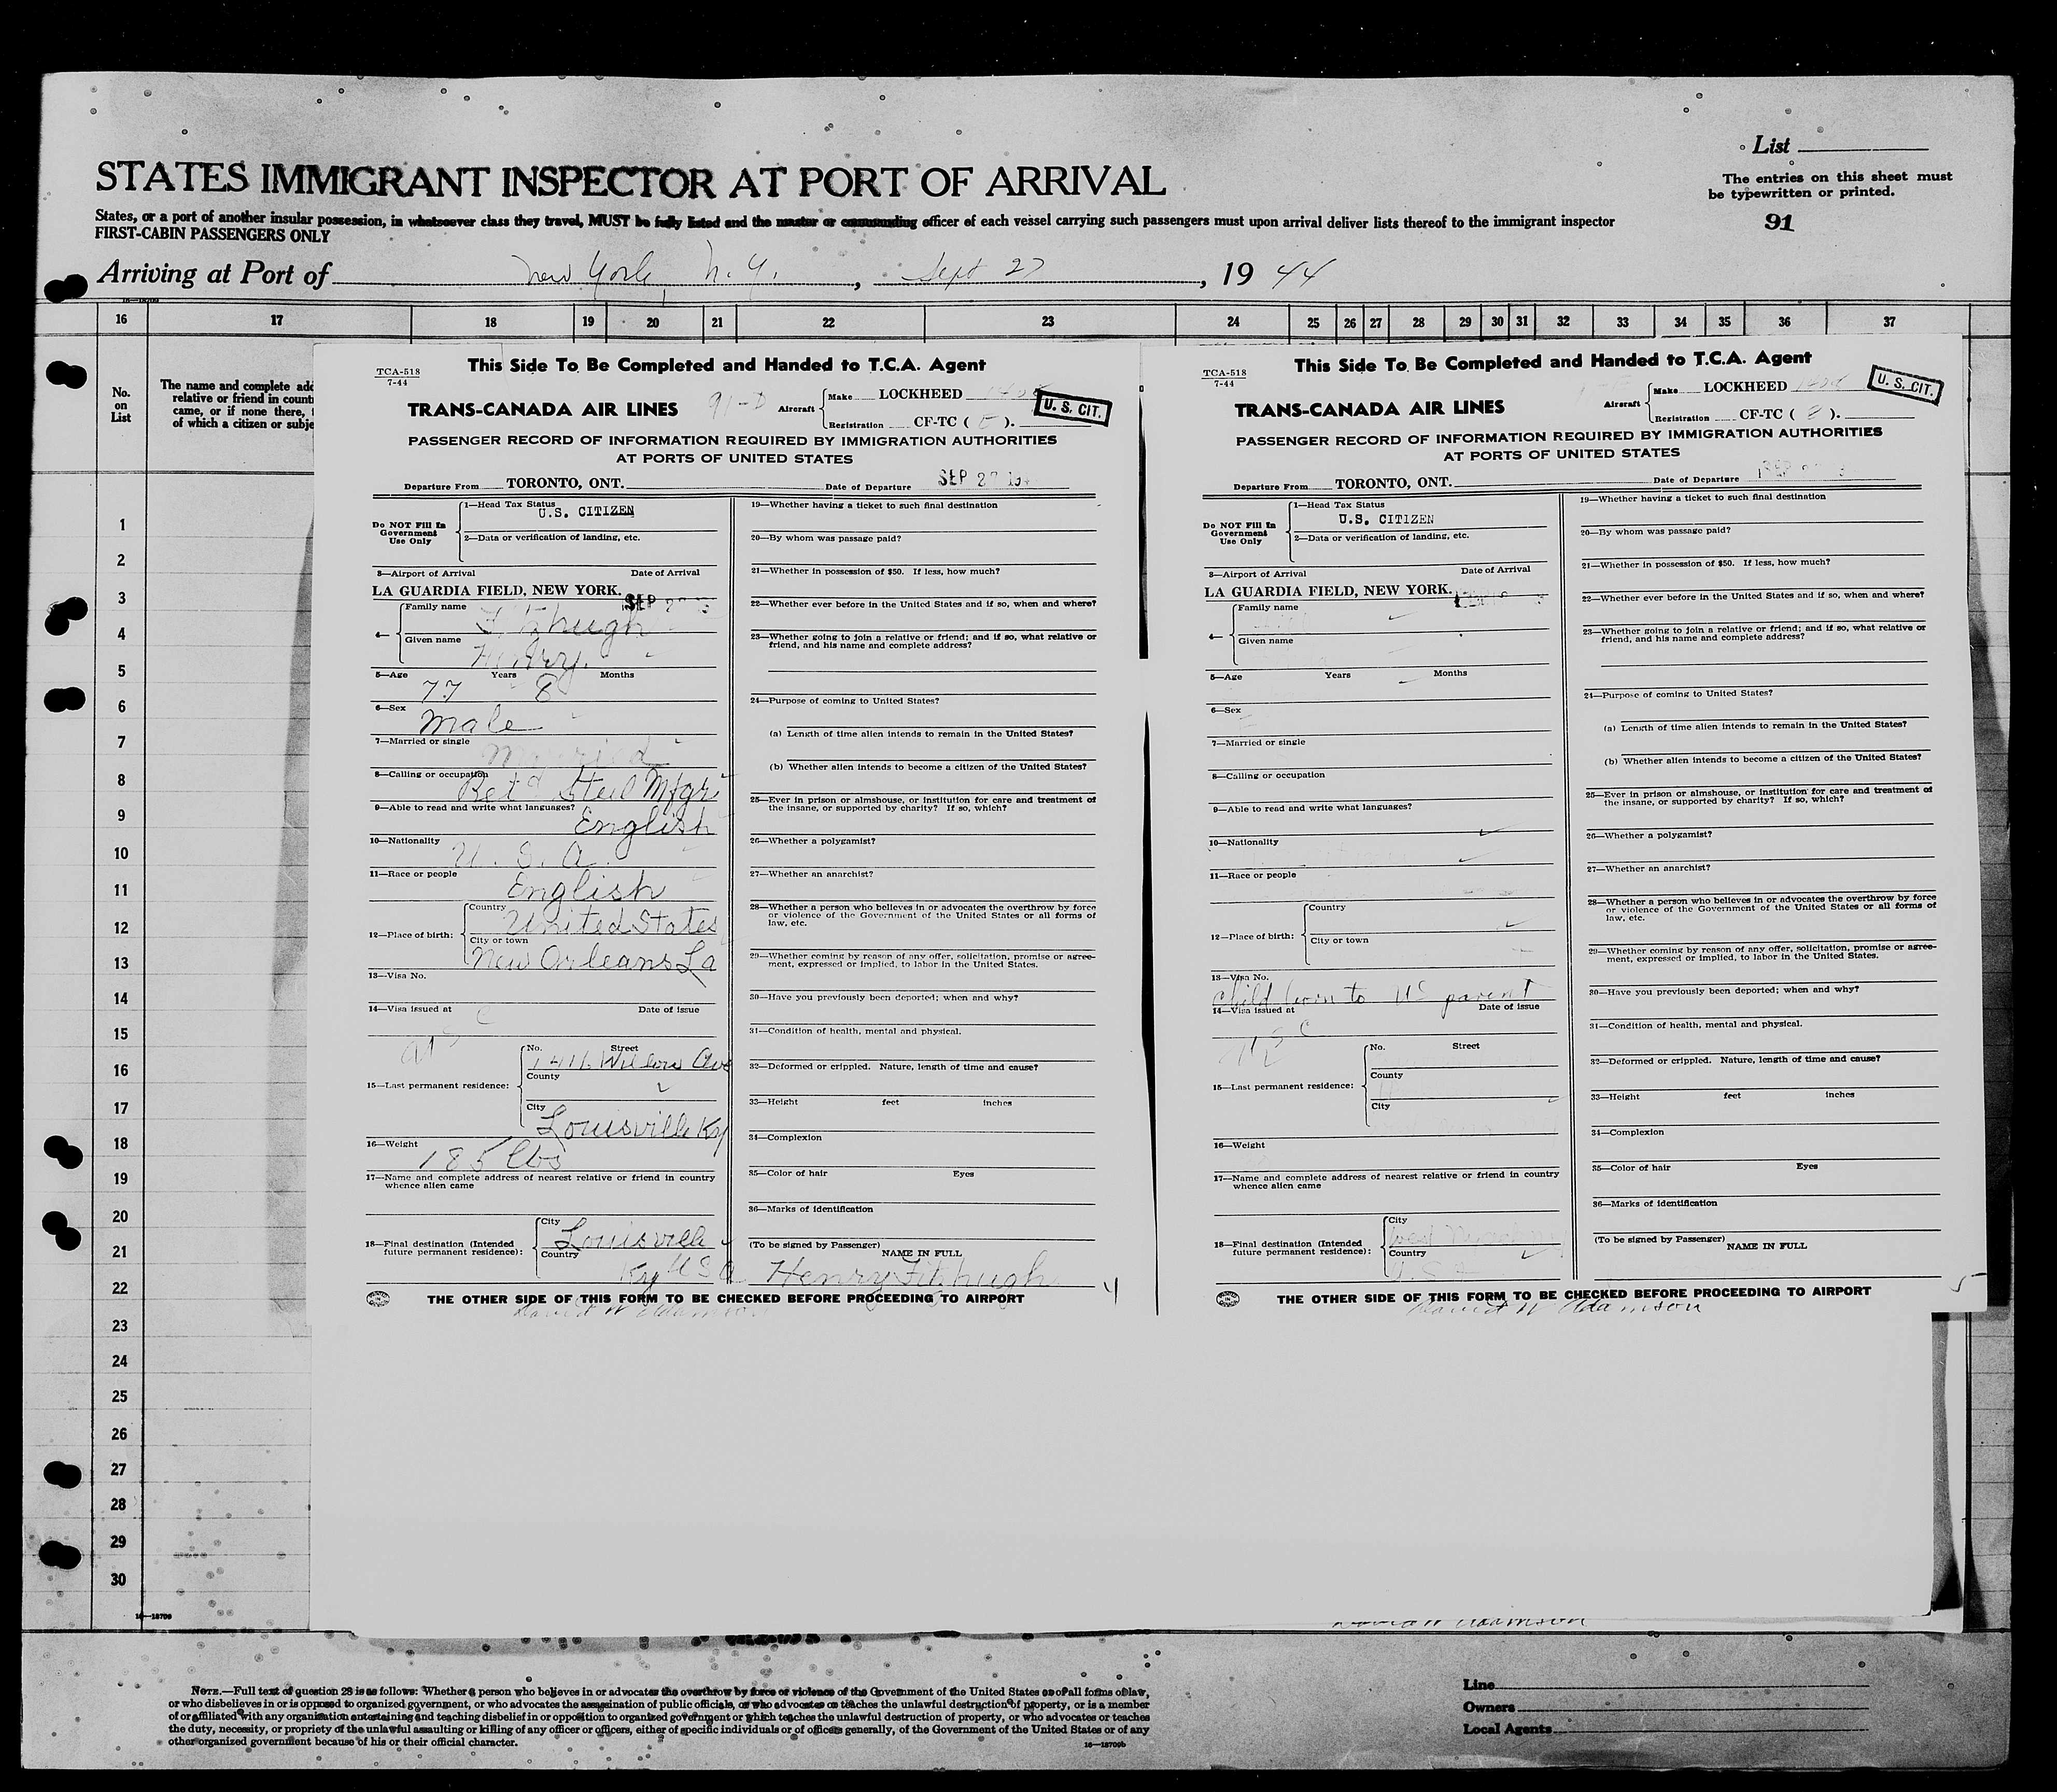 List
The entries on this sheet must
be typewritten or printed.
91
STATES IMMIGRANT INSPECTOR AT PORT OF ARRIVAL
States, or a port of another insular possession, in whatsoever class they travel, MUST be fully listed and the master or commanding officer of each vessel carrying such passengers must upon arrival deliver lists thereof to the immigrant inspector
FIRST-CABIN PASSENGERS ONLY
Arriving at Port of New York, N. Y., Sept 27, 1944
16-18709
16 17 18 19 20 21 22 23 24 25 26 27 28 29 30 31 32 33 34 35 36 37
No.
on
List
The name and complete add
relative or friend in count
came, or if none there,
of which a citizen or subje
1
2
3
4
5
6
7
8
9
10
11
12
13
14
15
16
17
18
19
20
21
22
23
24
25
26
27
28
29
30
16-18709
This Side To Be Completed and Handed to T.C.A. Agent
TCA-518
7-44
TRANS-CANADA AIR LINES
91-D
Aircraft
Make LOCKHEED
Registration CF-TC ( E ).
U. S. CIT.
PASSENGER RECORD OF INFORMATION REQUIRED BY IMMIGRATION AUTHORITIES
AT PORTS OF UNITED STATES
Departure From TORONTO, ONT. Date of Departure SEP 27
Do NOT Fill In
Government
Use Only
1—Head Tax Status
U.S. CITIZEN
2—Data or verification of landing, etc.
3—Airport of Arrival Date of Arrival
LA GUARDIA FIELD, NEW YORK. SEP 27
4—
Family name
Fitzhugh
Given name
Henry.
5—Age Years Months
77 8
6—Sex
Male
7—Married or single
Married
8—Calling or occupation
Ret'd Steel Mfgr
9—Able to read and write what languages?
English
10—Nationality
U. S. A.
11—Race or people
English
12—Place of birth:
Country
United States
City or town
New Orleans La
13—Visa No.
14—Visa issued at Date of issue
15—Last permanent residence:
No. Street
1416 Willow Ave
County
City
Louisville Ky
16—Weight
185 lbs
17—Name and complete address of nearest relative or friend in country
whence alien came
18—Final destination (Intended
future permanent residence):
City
Louisville
Country
Ky U S A
19—Whether having a ticket to such final destination
20—By whom was passage paid?
21—Whether in possession of $50. If less, how much?
22—Whether ever before in the United States and if so, when and where?
23—Whether going to join a relative or friend; and if so, what relative or
friend, and his name and complete address?
24—Purpose of coming to United States?
(a) Length of time alien intends to remain in the United States?
(b) Whether alien intends to become a citizen of the United States?
25—Ever in prison or almshouse, or institution for care and treatment of
the insane, or supported by charity? If so, which?
26—Whether a polygamist?
27—Whether an anarchist?
28—Whether a person who believes in or advocates the overthrow by force
or violence of the Government of the United States or all forms of
law, etc.
29—Whether coming by reason of any offer, solicitation, promise or agree-
ment, expressed or implied, to labor in the United States.
30—Have you previously been deported; when and why?
31—Condition of health, mental and physical.
32—Deformed or crippled. Nature, length of time and cause?
33—Height feet inches
34—Complexion
35—Color of hair Eyes
36—Marks of identification
(To be signed by Passenger)
NAME IN FULL
Henry Fitzhugh
4
THE OTHER SIDE OF THIS FORM TO BE CHECKED BEFORE PROCEEDING TO AIRPORT
David W Adamson
This Side To Be Completed and Handed to T.C.A. Agent
TCA-518
7-44
TRANS-CANADA AIR LINES
Aircraft
Make LOCKHEED
Registration CF-TC ( E ).
U. S. CIT.
PASSENGER RECORD OF INFORMATION REQUIRED BY IMMIGRATION AUTHORITIES
AT PORTS OF UNITED STATES
Departure From TORONTO, ONT. Date of Departure
Do NOT Fill In
Government
Use Only
1—Head Tax Status
U.S. CITIZEN
2—Data or verification of landing, etc.
3—Airport of Arrival Date of Arrival
LA GUARDIA FIELD, NEW YORK.
4—
Family name
Given name
5—Age Years Months
6—Sex
7—Married or single
8—Calling or occupation
9—Able to read and write what languages?
10—Nationality
11—Race or people
12—Place of birth:
Country
City or town
13—Visa No.
Child born to US parent
14—Visa issued at Date of issue
15—Last permanent residence:
No. Street
County
City
16—Weight
17—Name and complete address of nearest relative or friend in country
whence alien came
18—Final destination (Intended
future permanent residence):
City
Country
19—Whether having a ticket to such final destination
20—By whom was passage paid?
21—Whether in possession of $50. If less, how much?
22—Whether ever before in the United States and if so, when and where?
23—Whether going to join a relative or friend; and if so, what relative or
friend, and his name and complete address?
24—Purpose of coming to United States?
(a) Length of time alien intends to remain in the United States?
(b) Whether alien intends to become a citizen of the United States?
25—Ever in prison or almshouse, or institution for care and treatment of
the insane, or supported by charity? If so, which?
26—Whether a polygamist?
27—Whether an anarchist?
28—Whether a person who believes in or advocates the overthrow by force
or violence of the Government of the United States or all forms of
law, etc.
29—Whether coming by reason of any offer, solicitation, promise or agree-
ment, expressed or implied, to labor in the United States.
30—Have you previously been deported; when and why?
31—Condition of health, mental and physical.
32—Deformed or crippled. Nature, length of time and cause?
33—Height feet inches
34—Complexion
35—Color of hair Eyes
36—Marks of identification
(To be signed by Passenger)
NAME IN FULL
5
THE OTHER SIDE OF THIS FORM TO BE CHECKED BEFORE PROCEEDING TO AIRPORT
David W Adamson
David W Adamson
NOTE.—Full text of question 28 is as follows: Whether a person who believes in or advocates the overthrow by force or violence of the Government of the United States or of all forms of law,
or who disbelieves in or is opposed to organized government, or who advocates the assassination of public officials, or who advocates or teaches the unlawful destruction of property, or is a member
of or affiliated with any organization entertaining and teaching disbelief in or opposition to organized government or which teaches the unlawful destruction of property, or who advocates or teaches
the duty, necessity, or propriety of the unlawful assaulting or killing of any officer or officers, either of specific individuals or of officers generally, of the Government of the United States or of any
other organized government because of his or their official character.
16-18709b
Line
Owners
Local Agents